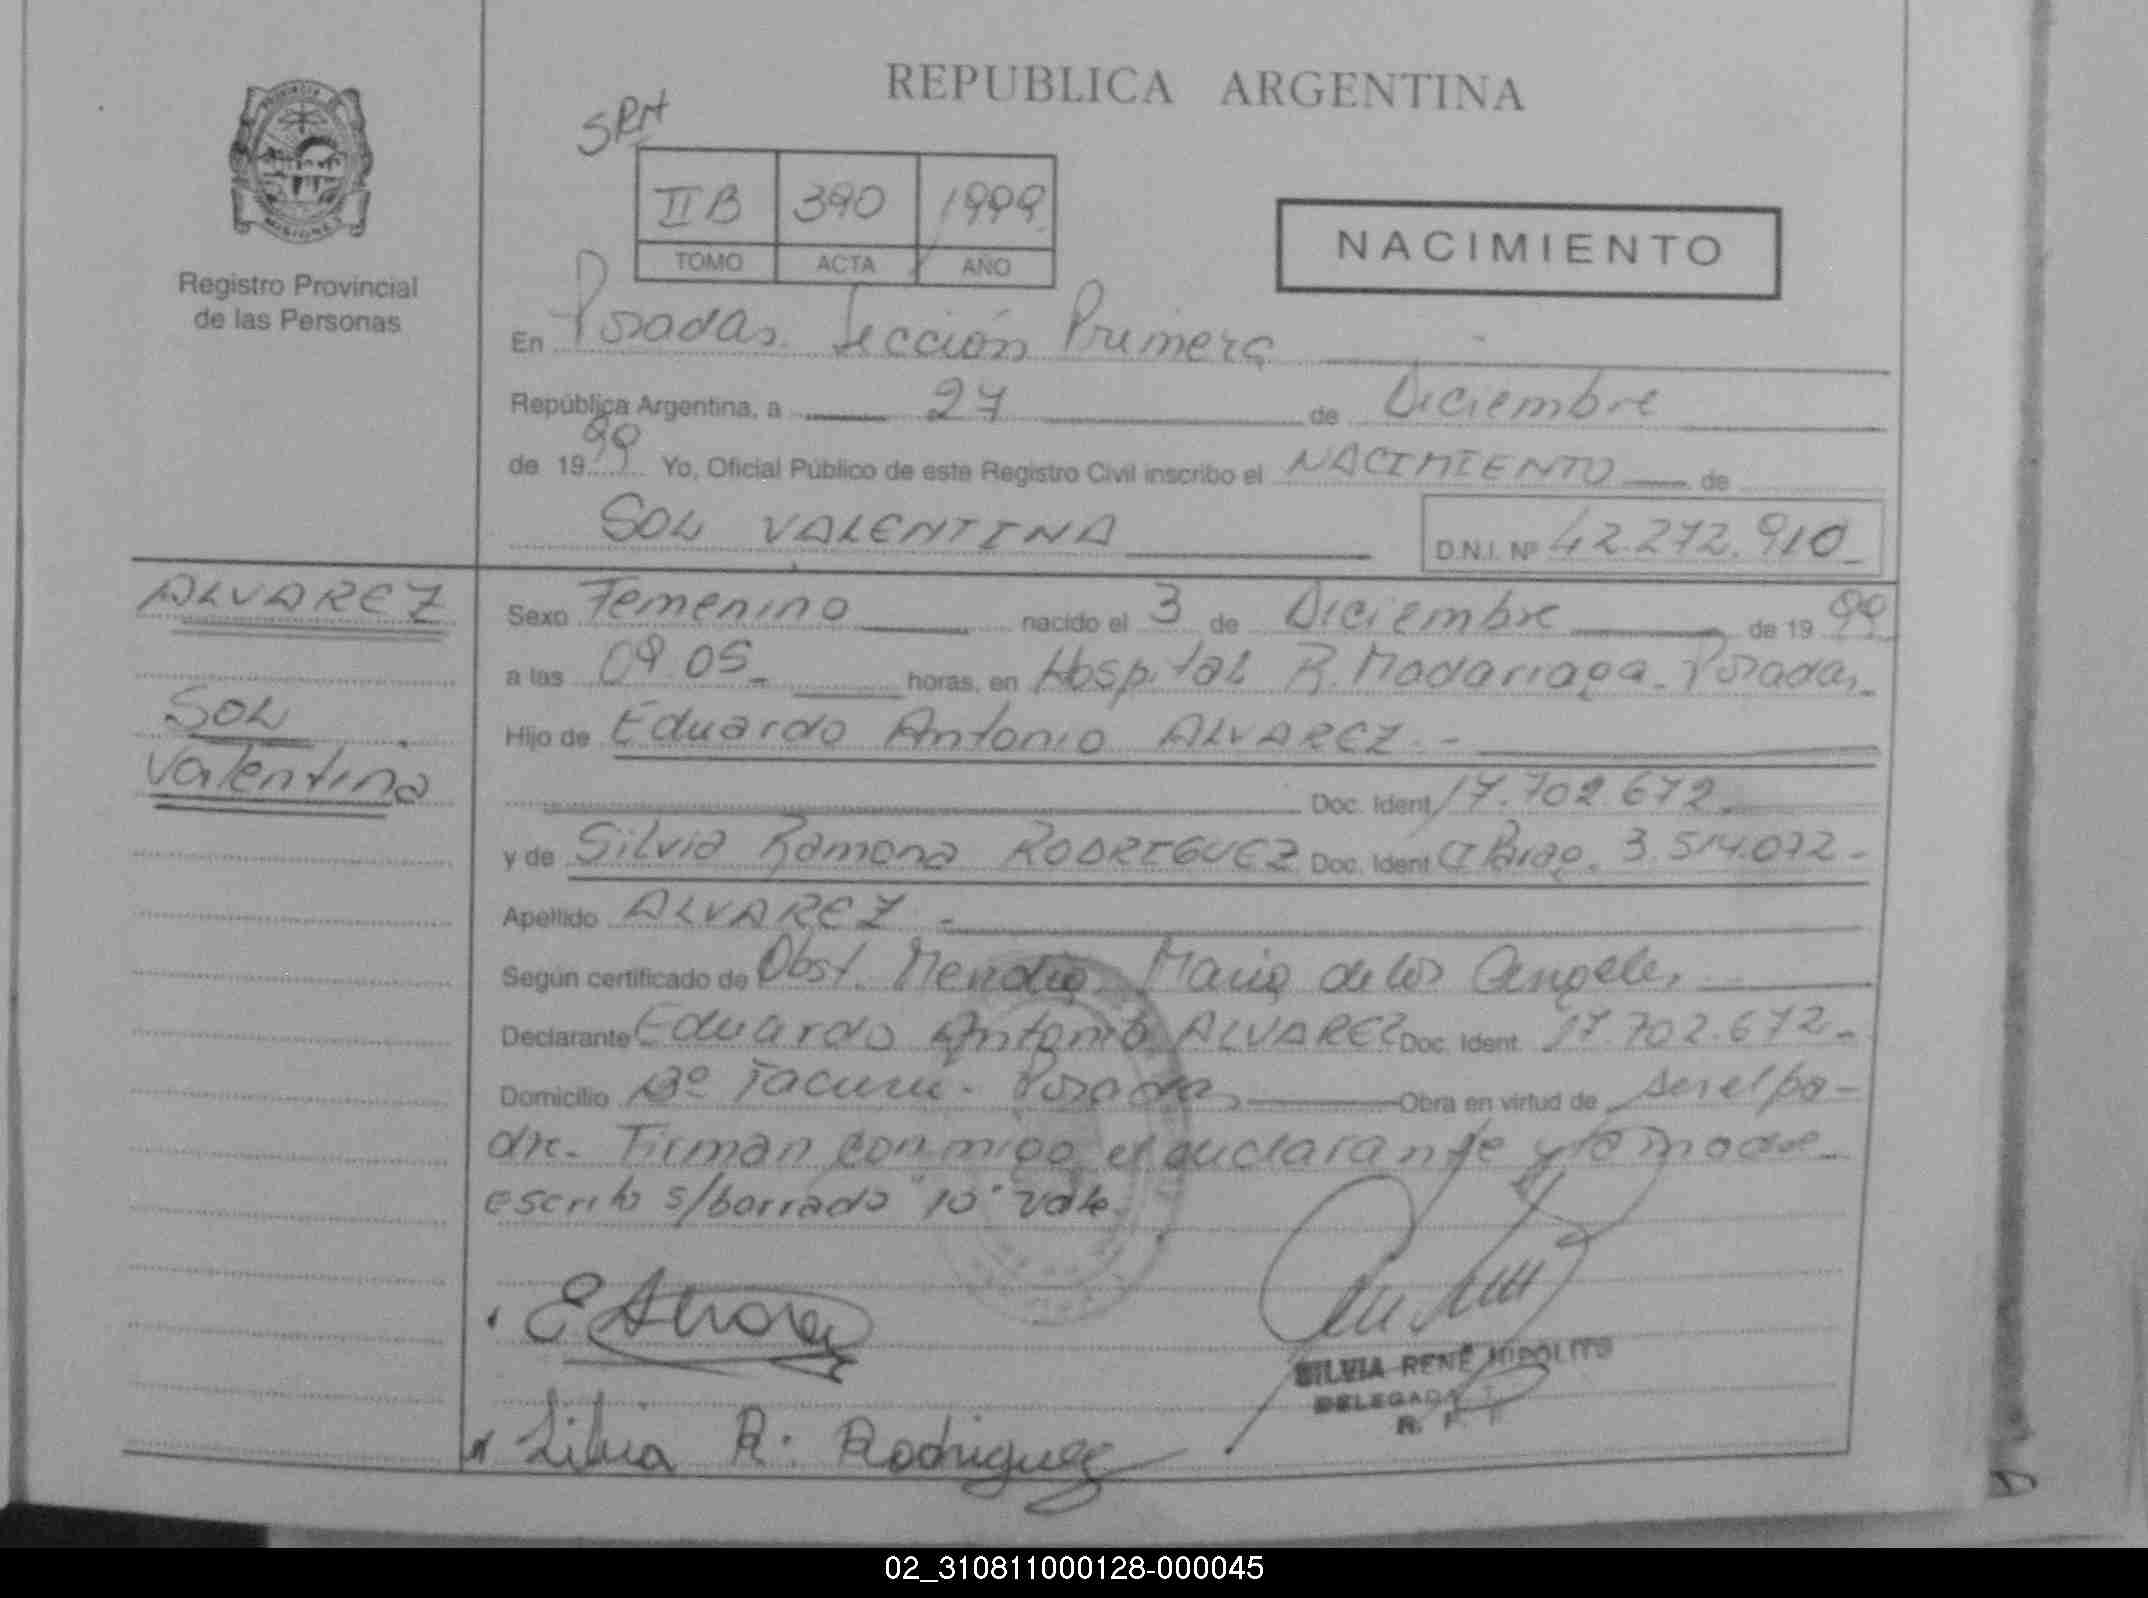 REPUBLICA ARGENTINA
PROVINCIA DE
MISIONES
Registro Provincial
de las Personas
SRH
II B 390 1999
TOMO ACTA AÑO
NACIMIENTO
En Posadas Sección Primera
República Argentina, a 27 de Diciembre
de 1999 Yo, Oficial Público de este Registro Civil inscribo el NACIMIENTO de
SOL VALENTINA D.N.I. Nº 42.272.910
ALVAREZ
SOL
Valentina
Sexo Femenino nacido el 3 de Diciembre de 1999
a las 09.05 horas, en Hospital R. Madariaga - Posadas
Hijo de Eduardo Antonio ALVAREZ.-
Doc. Ident 17.702.672
y de Silvia Ramona RODRIGUEZ Doc. Ident CI Parag. 3.514.072-
Apellido ALVAREZ -
Según certificado de Obst. Maria de los Angeles
Declarante Eduardo Antonio ALVAREZ Doc. Ident. 17.702.672-
Domicilio Bº Tacuru - Posadas Obra en virtud de ser el pa-
dre. Firman conmigo el declarante y la madre
escrito s/borrado "10" vale.
E Alvarez
SILVIA RENÉ HIPOLITO
DELEGADA
Silvia R. Rodriguez
02_310811000128-000045